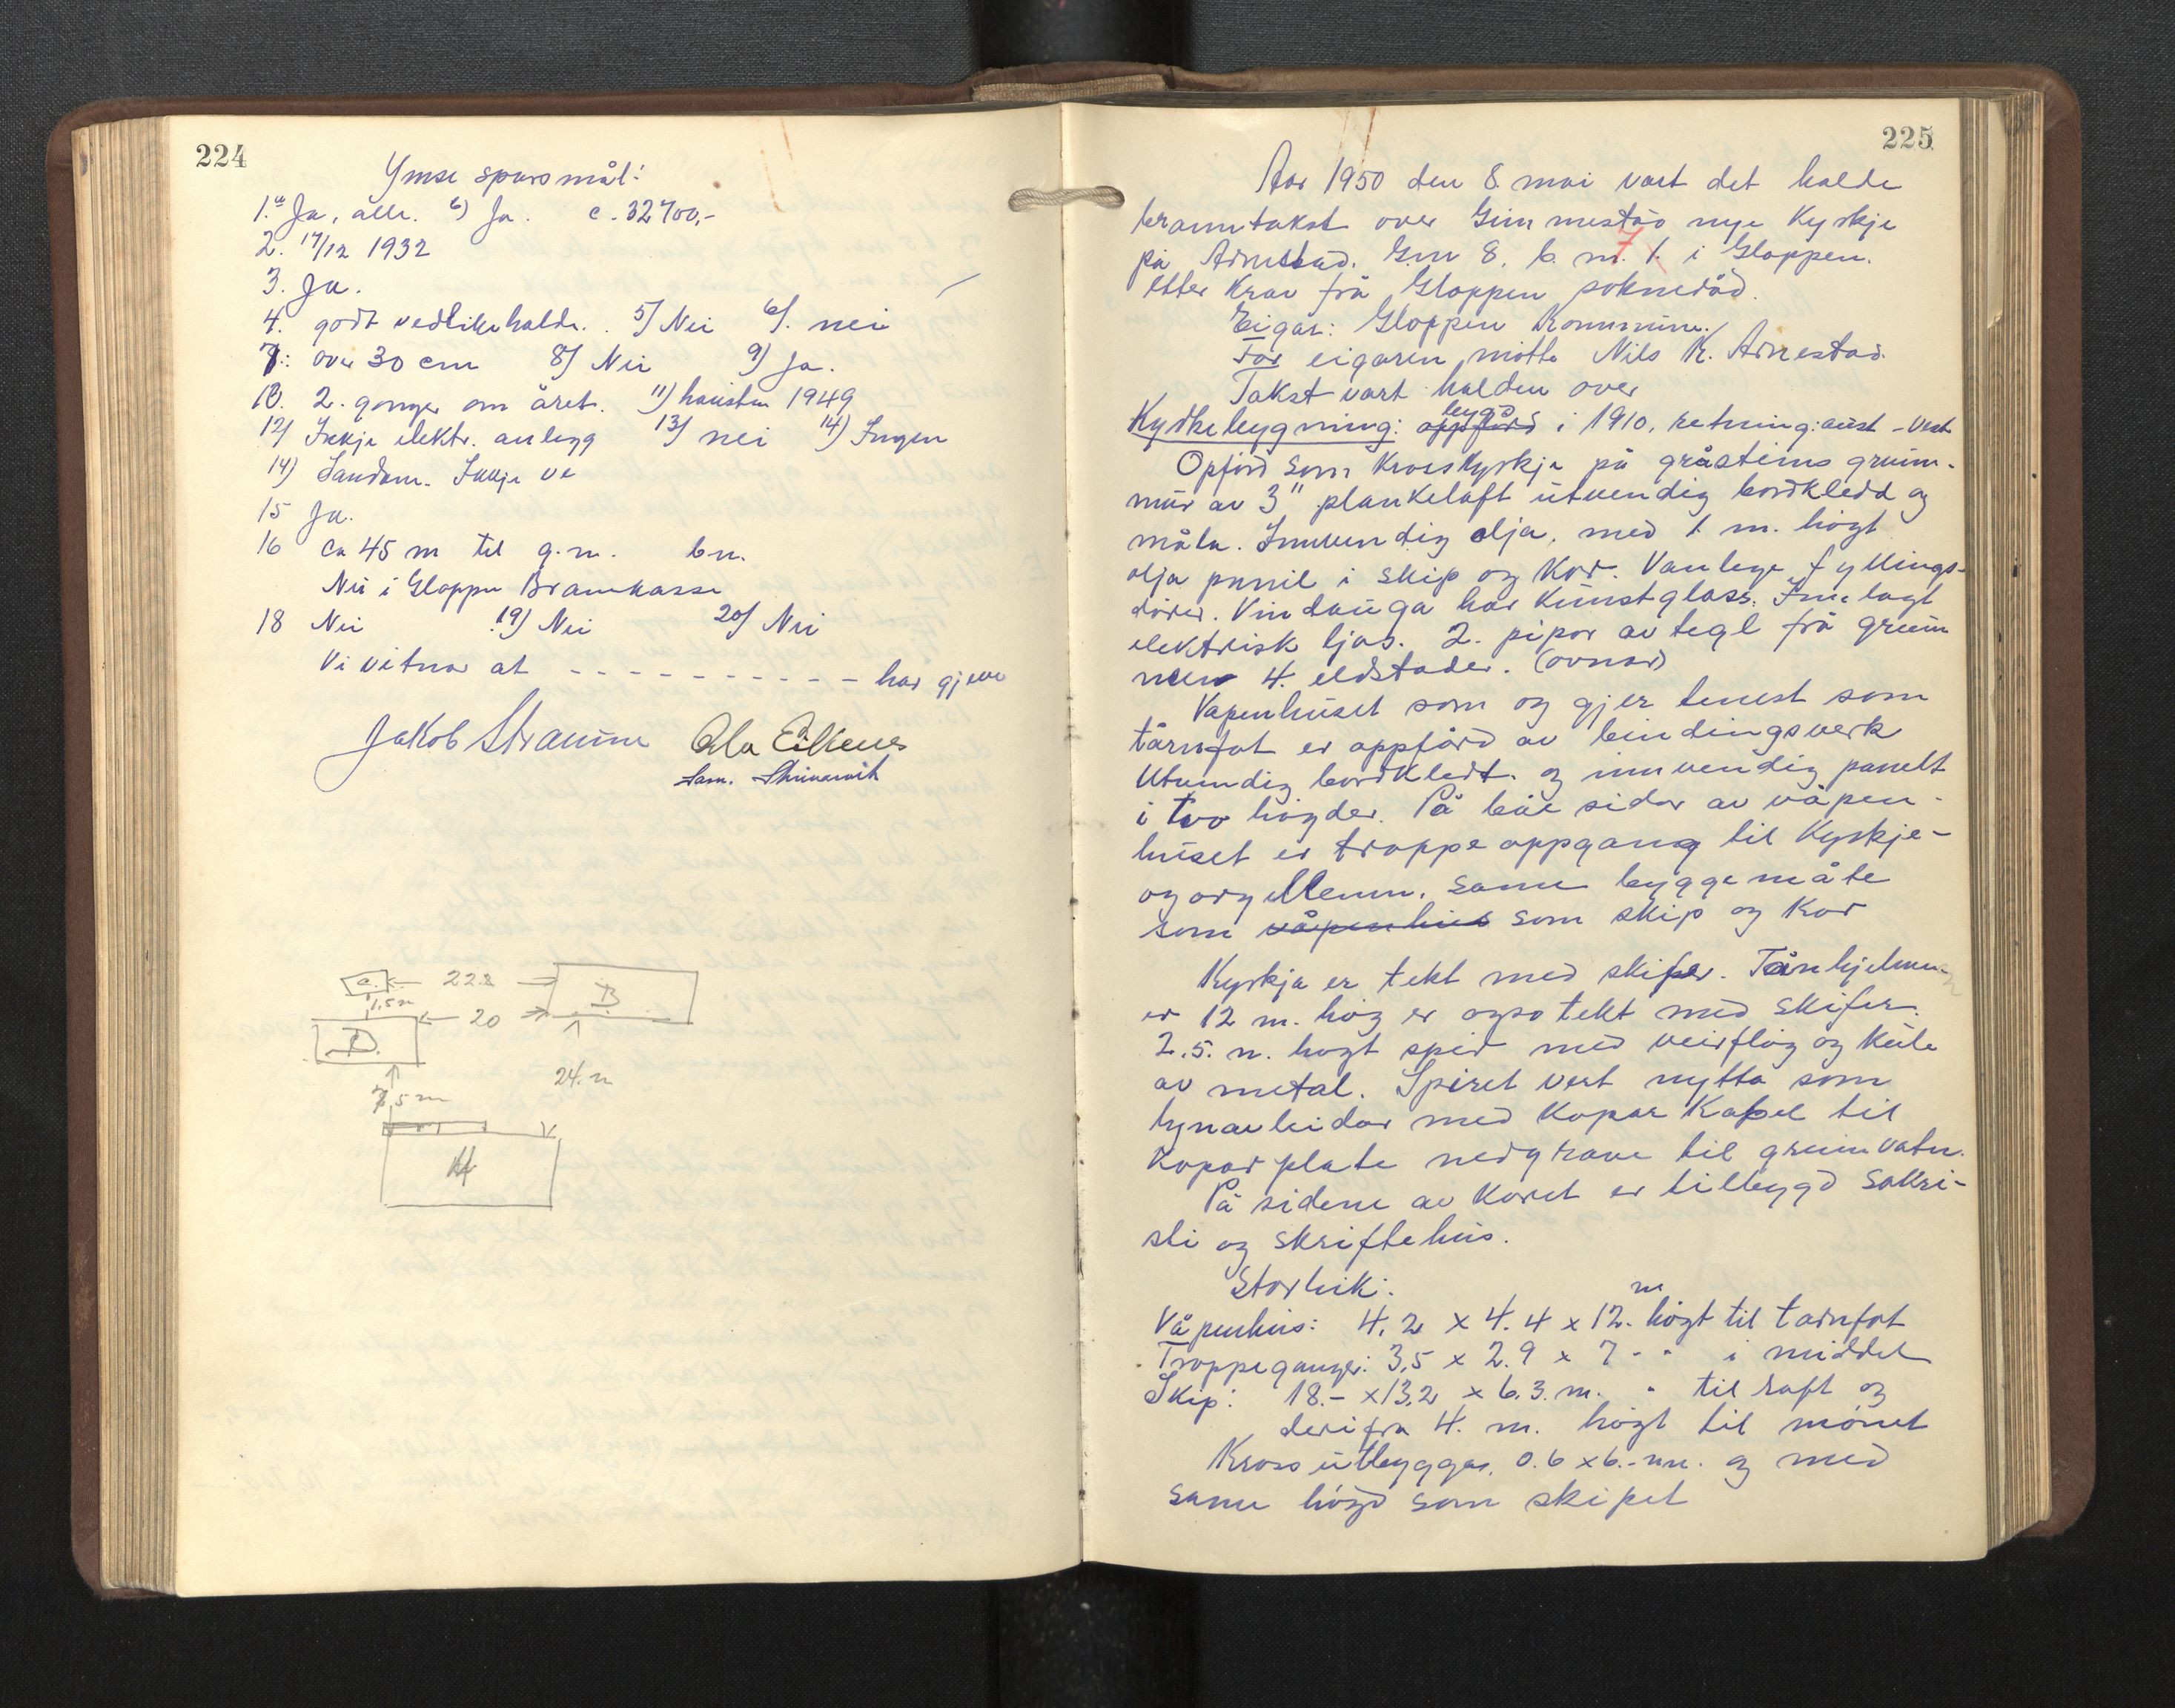 224
Ymse spursmål:
1.a Ja, alle. b) Ja. c. 32700,-
2. 17/12 1932
3. Ja.
4. godt vedlikehalde. 5) Nei 6). nei
7: over 30 cm 8) Nei 9) Ja.
10. 2. gonger om året. 11) hausten 1949
12) Inkje elektr. anlegg 13) nei 14) Ingen
14) Inkje ve
15 Ja.
16 ca 45 m til g.n. bn.
Nei i Gloppen Brannkasse
18 Nei 19) Nei 20) Nei
Vi vitnar at - - - - - - - - - - har gjeve
Jakob Straume Ola Eikenes
C. 22.2 B
1,5 m
20
D.
24. m
7,5 m
V
225
Aar 1950 den 8. mai vart det halde
branntakst over Gimmestad nye Kyrkje
på Arnestad. Gnr 8. b. nr. 7 1. i Gloppen.
etter krav frå Gloppen sokneråd.
Eigar: Gloppen kommune.
For eigaren møtte Nils K. Arnestad.
Takst vart halden over
Kyrkebygning: oppførd bygd i 1910, retning: aust - vest
Opførd som Krosskyrkje på gråsteins grunn-
mur av 3" plankelaft utvendig bordkledd og
måla. Innvendig olja, med 1 m. høgt
olja panil i skip og kor. Vanlege fyllings-
dører. Vindauga har kunstglass. Innlagt
elektrisk ljos. 2. pipor av tegl frå grunn
nen 4. eldstader. (ovnar)
Vapenhuset som og gjer tenest som
tårnfot er oppførd av bindingsverk
Utvendig bordkledt. og innvendig panelt
i two høgder. På båe sidor av våpen-
huset er troppeoppgang til Kyrkje-
og orgellemm. Same byggemåte
som våpenhus som skip og kor
Kyrkja er tekt med skifer. Tårnhjelmen
er 12 m. høg er ogso tekt med skifer.
2.5. m. høgt spir med veirfløg og kule
av metal. Spiret vert nytta som
lynavleidar med kopar kabel til
koparplate nedgrave til grunnvatn.
På sidene av koret er tilbygd sakri-
sti og skriftehus.
Storleik:
Våpenhus: 4,2 x 4.4 x 12. m høgt til tårnfot
Troppeganger: 3,5 x 2.9 x 7 - " i middel
Skip: 18.- x 13,2 x 6.3. m. " til raft og
derifra 4. m. høgt til mønet
Kross utbyggar. 0.6 x 6.- m. og med
same høgd som skipet